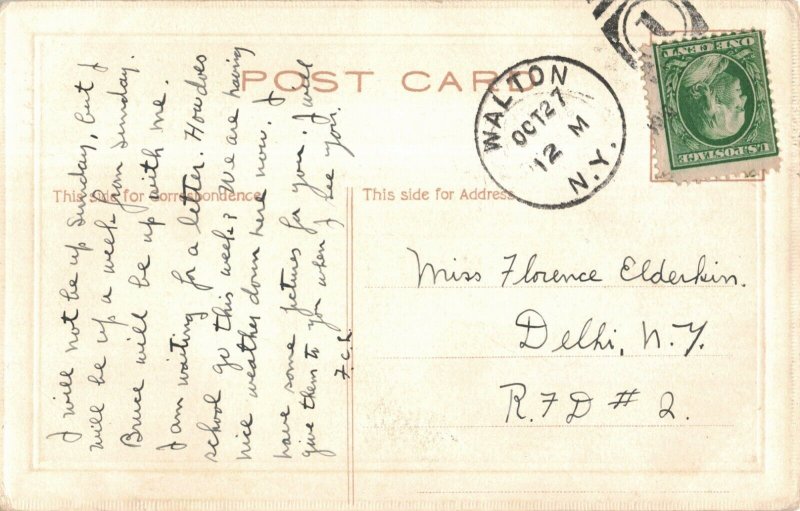 POST CARD
This side for Correspondence
This side for Address
WALTON
OCT 27
12 M
N.Y.
1
U.S. POSTAGE
ONE CENT
I will not be up Sunday, but I
will be up a week from Sunday.
Bruce will be up with me.
I am waiting for a letter. How does
school go this week? We are having
nice weather down here now. I
have some pictures for you. I will
give them to you when I see you.
F.C.L.
Miss Florence Elderkin.
Delhi, N.Y.
R.F.D # 2.